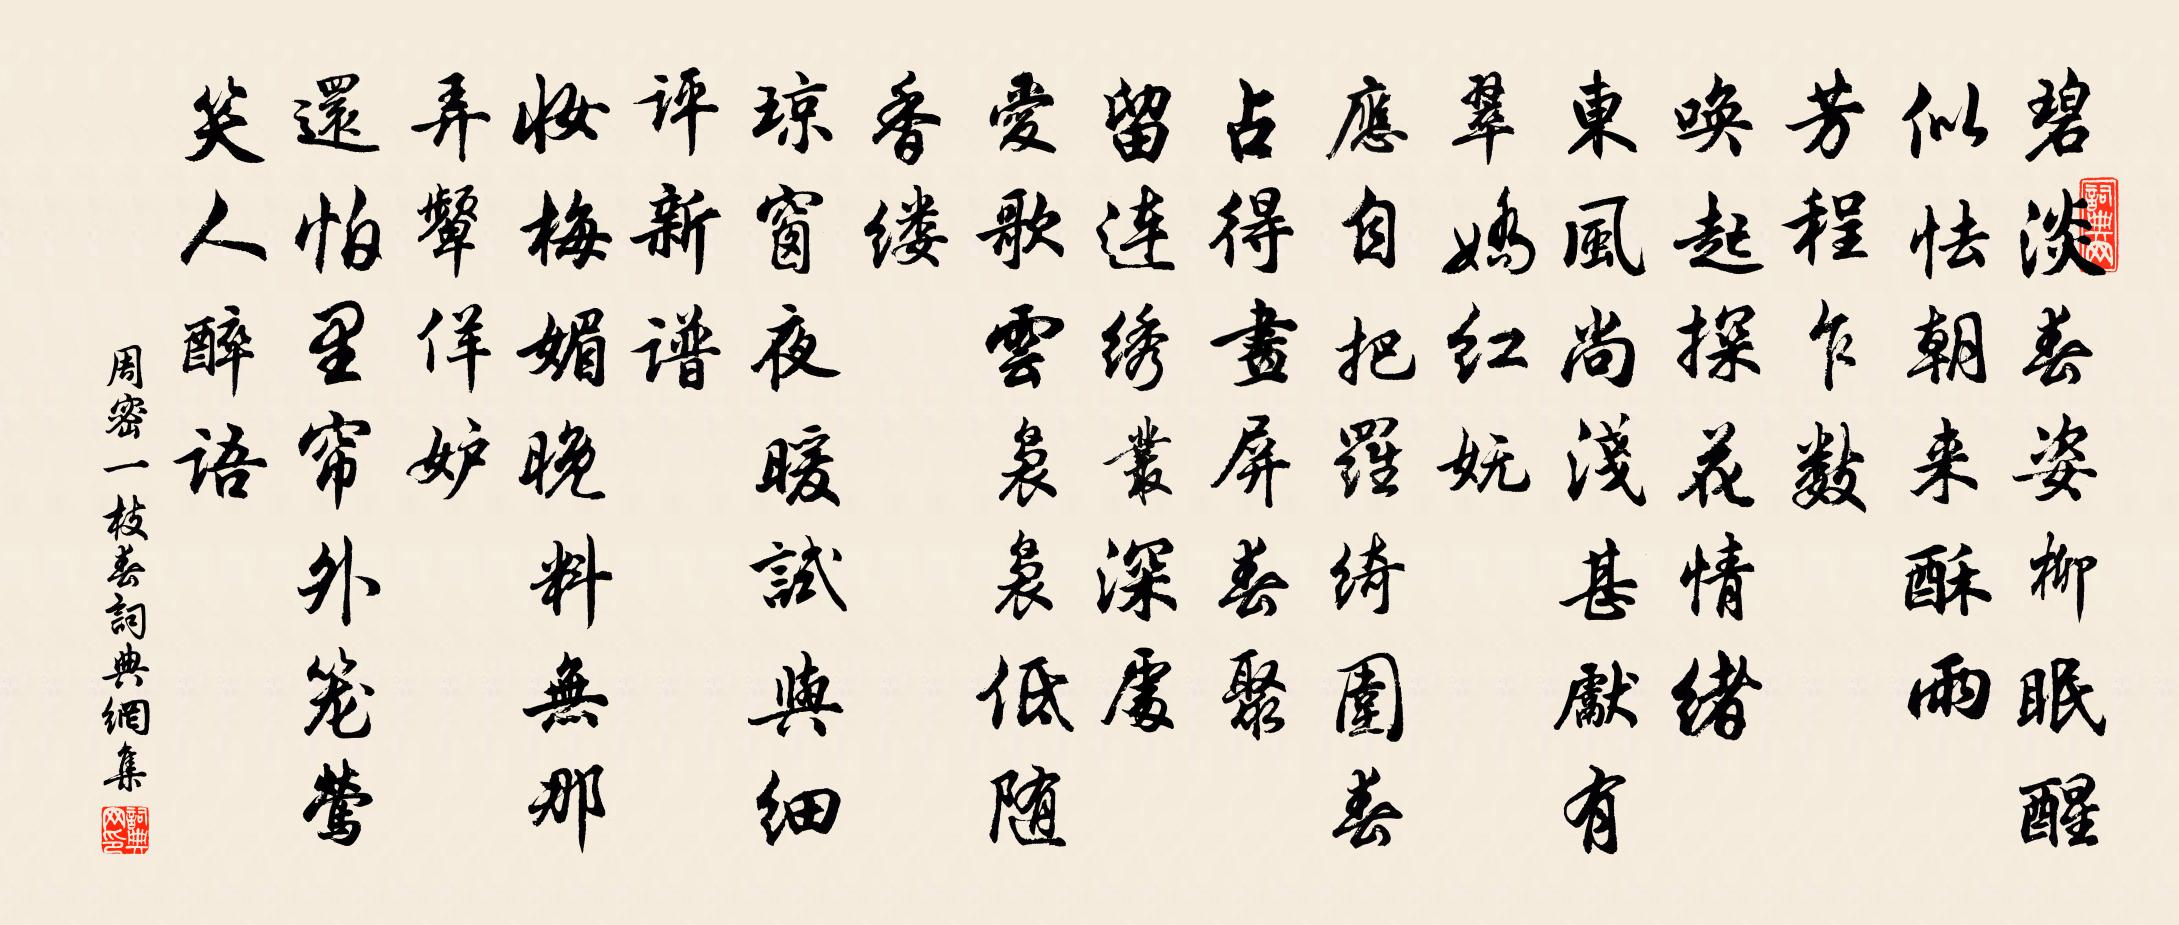 碧淡春姿柳眠醒
似怯朝来酥雨
芳程乍数
唤起探花情绪
東風尚淺甚獻有
翠娇红妩
應自把羅绮圍春
占得畫屏春聚
留連绣叢深處
愛歌雲袅袅低随
香缕
琼窗夜暖試與细
评新谱
妆梅媚晚料無那
弄顰佯妒
還怕里帘外笼鶯
笑人醉语
周密一枝春詞典網集
詞典网
詞典网印